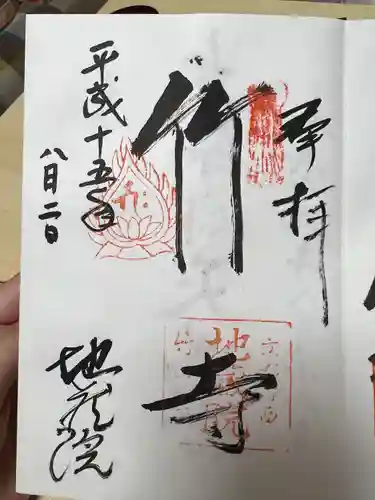 奉拝
竹
寺
平成十五年
八月二日
地蔵院